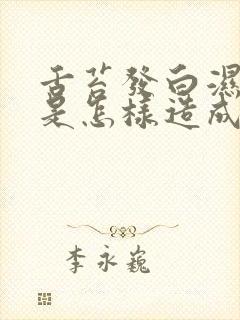 舌苔發白濕
是怎樣造成
李永巍